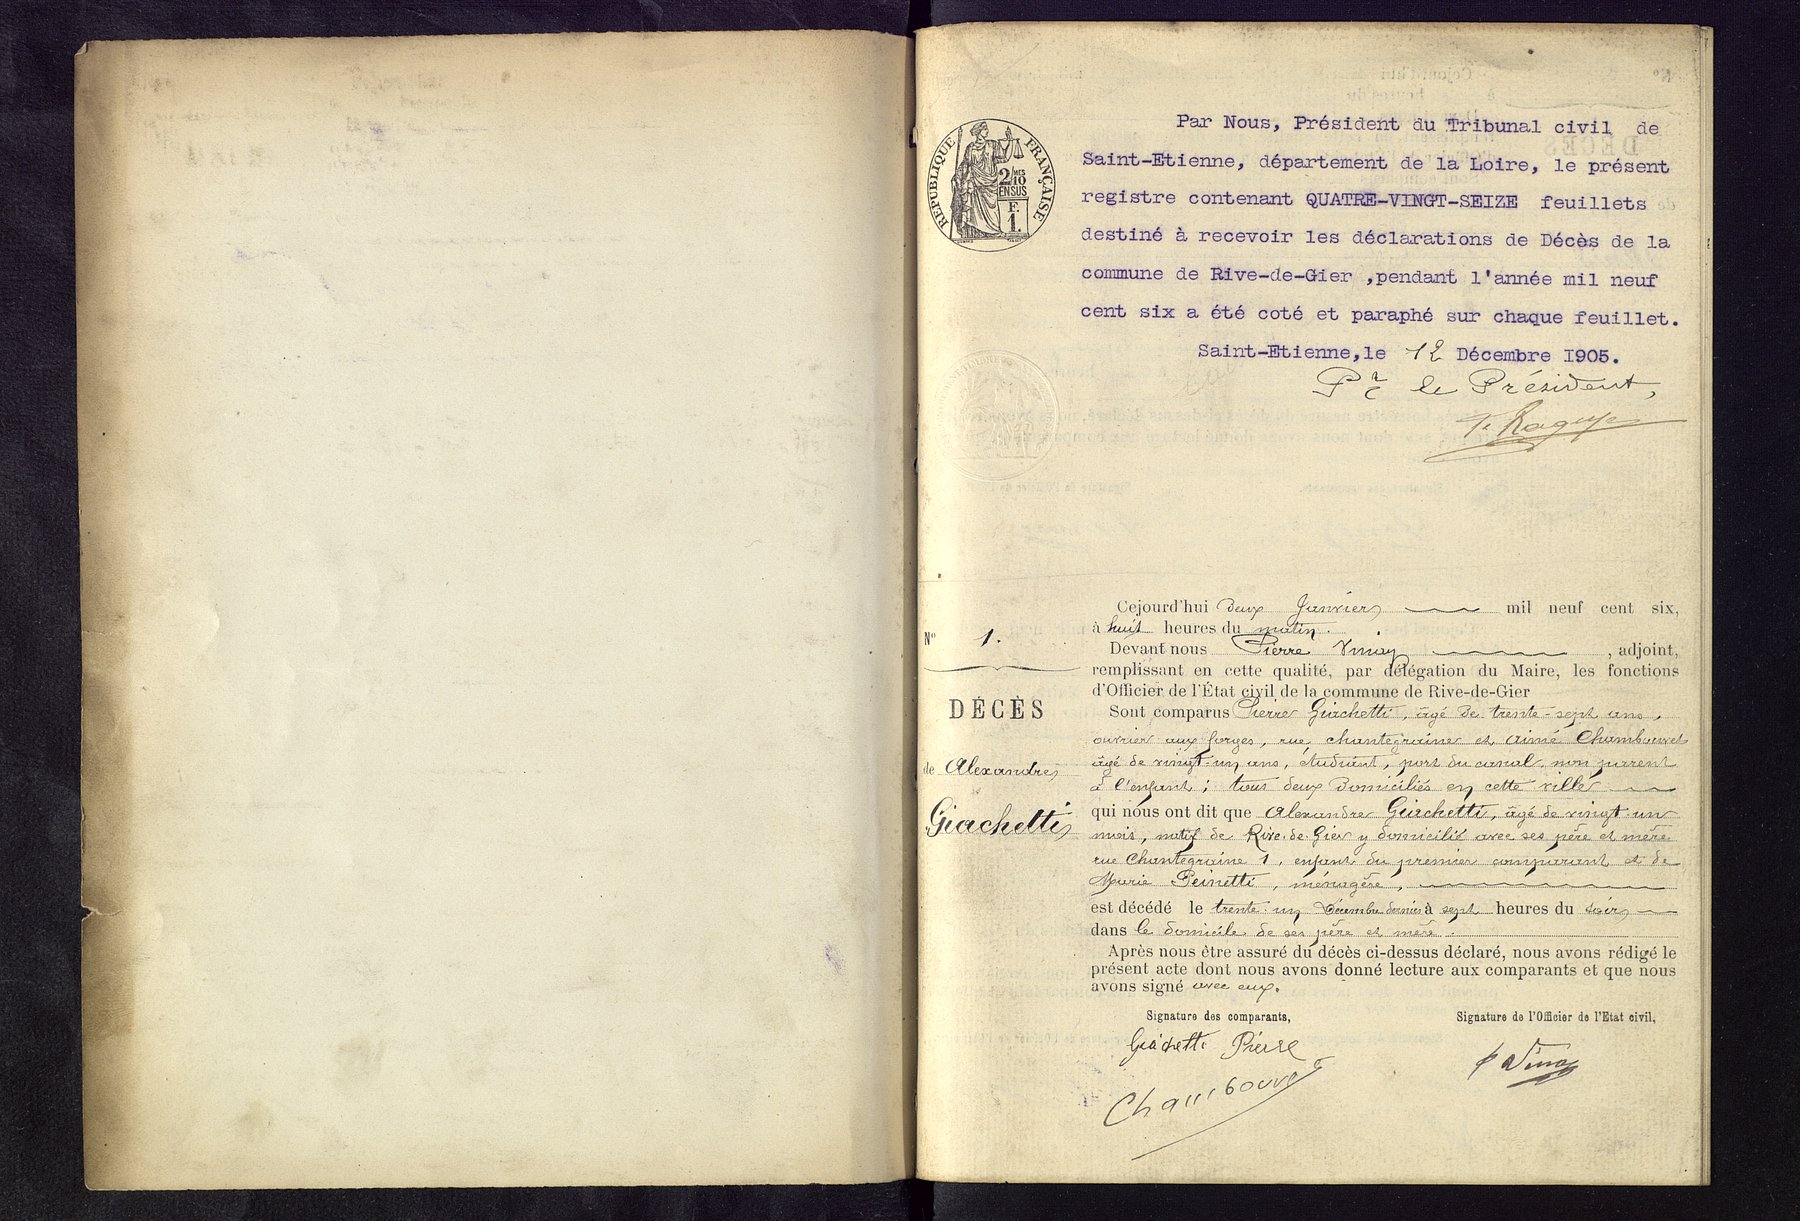 Par Nous, Président du Tribunal civil de
Saint-Etienne, département de la Loire, le présent
registre contenant QUATRE-VINGT-SEIZE feuillets
destiné à recevoir les déclarations de Décès de la
commune de Rive-de-Gier ,pendant l'année mil neuf
cent six a été coté et paraphé sur chaque feuillet.
Saint-Etienne,le 12 Décembre I905.
Pr le Président,
REPUBLIQUE FRANÇAISE
2/MES
10
EN SUS
F.
1.
Nº 1.
DÉCÈS
de Alexandre
Giachetti
Cejourd'hui deux Janvier mil neuf cent six,
à huit heures du matin.
Devant nous Pierre Vinay, adjoint,
remplissant en cette qualité, par délégation du Maire, les fonctions
d'Officier de l'État civil de la commune de Rive-de-Gier
Sont comparus Pierre Giachetti, âgé de trente-sept ans,
ouvrier aux forges, rue chantegraine et aimé Chambouvet
âgé de vingt-un ans, étudiant, port du canal, non parent
à l'enfant ; tous deux domiciliés en cette ville
qui nous ont dit que alexandre Giachetti, âgé de vingt un
mois, natif de Rive-de-Gier y domicilié avec ses père et mère
rue Chantegraine 1, enfant du premier comparant et de
Marie Peinetti, ménagère,
est décédé le trente-un Décembre dernier à sept heures du soir
dans le domicile de ses père et mère.
Après nous être assuré du décès ci-dessus déclaré, nous avons rédigé le
présent acte dont nous avons donné lecture aux comparants et que nous
avons signé avec eux.
Signature des comparants,
Signature de l'Officier de l'Etat civil,
Giachetti Pierre
Chambouvet
P Vinay